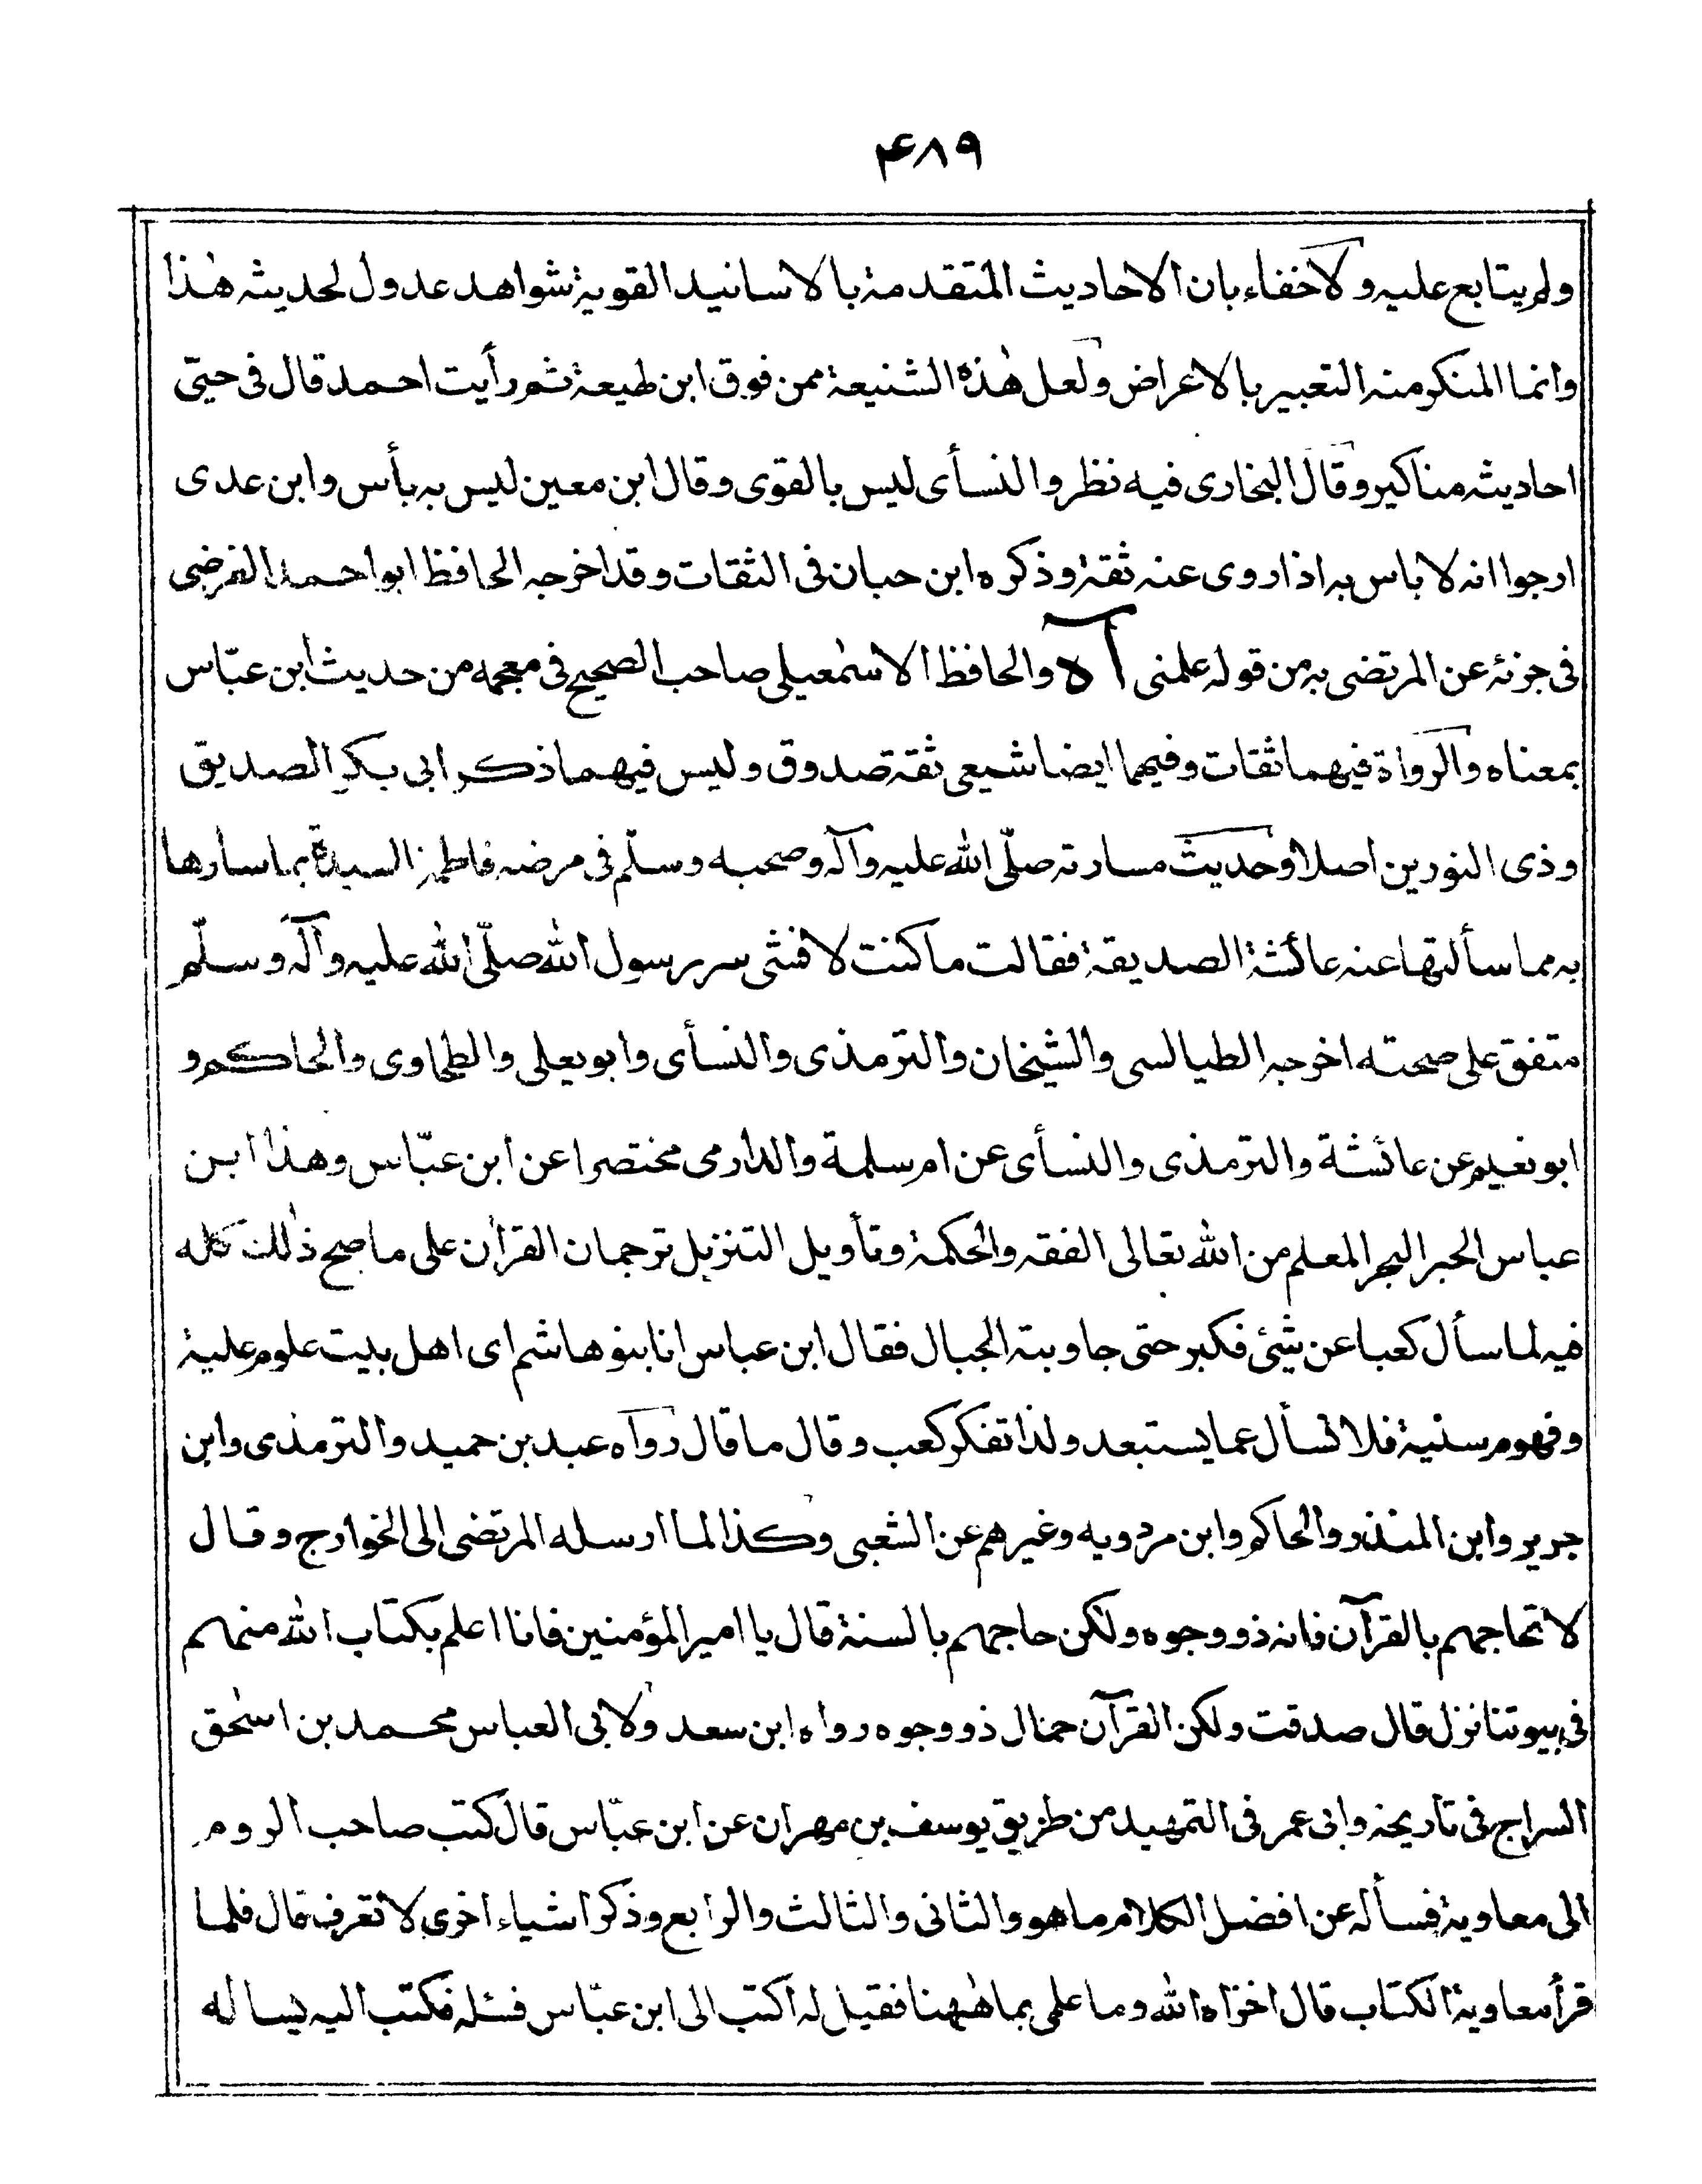 ۴۸۹
ولم يتابع عليه ولا خفاء بان الاحاديث المتقدمة بالاسانيد القوية شواهد عدول لحديثه هٰذا
وانما المنكر منه التعبير بالاعراض ولعل هٰذه الشنيعة ممن فوق ابن لهيعة ثم رأيت احمد قال فى حيّى
احاديثه مناكير وقال البخارى فيه نظر والنسأى ليس بالقوى وقال ابن معين ليس به بأس وابن عدى
ارجوا انه لا باس به اذا روى عنه ثقة وذكره ابن حبان فى الثقات وقد اخرجه الحافظ ابو احمد الفرضى
فى جزئه عن المرتضى به من قوله علمنى آه والحافظ الاسمٰعيلى صاحب الصحيح فى معجمه من حديث ابن عبّاس
بمعناه والرواة فيهما ثقات وفيهما ايضا شيعى ثقة صدوق وليس فيهما ذكر ابى بكر الصديق
وذى النورين اصلا وحديث مسارته صلّى الله عليه وآله وصحبه وسلّم فى مرضه فاطمة السيدة بما سارها
به مما سألتها عنه عائشة الصديقة فقالت ما كنت لافشى سر رسول الله صلّى الله عليه وآله وسلّم
متفق على صحته اخرجه الطيالسى والشيخان والترمذى والنسأى وابو يعلى والطحاوى والحاكم و
ابو نعيم عن عائشة والترمذى والنسأى عن ام سلمة والدارمى مختصرا عن ابن عبّاس وهذا ابن
عباس الحبر البحر المعلم من الله تعالى الفقه والحكمة وتأويل التنزيل ترجمان القراٰن على ما صح ذٰلك كله
فيه لما سأل كعبا عن شئ فكبر حتى جاوبته الجبال فقال ابن عباس انا بنو هاشم اى اهل بيت علوم علية
وفهوم سنية فلا تسأل عما يستبعد ولذا تفكر كعب وقال ما قال رواه عبد بن حميد والترمذى وابن
جرير وابن المنذر والحاكم وابن مردويه وغيرهم عن الشعبى وكذا لما ارسله المرتضى الى الخوارج وقال
لا تحاجهم بالقرآن فانه ذو وجوه ولكن حاجهم بالسنة قال يا امير المؤمنين فانا اعلم بكتاب الله منهم
فى بيوتنا نزل قال صدقت ولكن القرآن حمال ذو وجوه رواه ابن سعد ولابى العباس محمد بن اسحٰق
السراج فى تاريخه وابى عمر فى التمهيد من طريق يوسف بن مهران عن ابن عبّاس قال كتب صاحب الروم
الى معاوية فسأله عن افضل الكلام ما هو والثانى والثالث والرابع وذكر اشياء اخرى لا تعرف قال فلما
قرأ معاوية الكتاب قال اخزاه الله وما علمى بما هٰهنا فقيل له اكتب الى ابن عبّاس فسئله فكتب اليه يساله